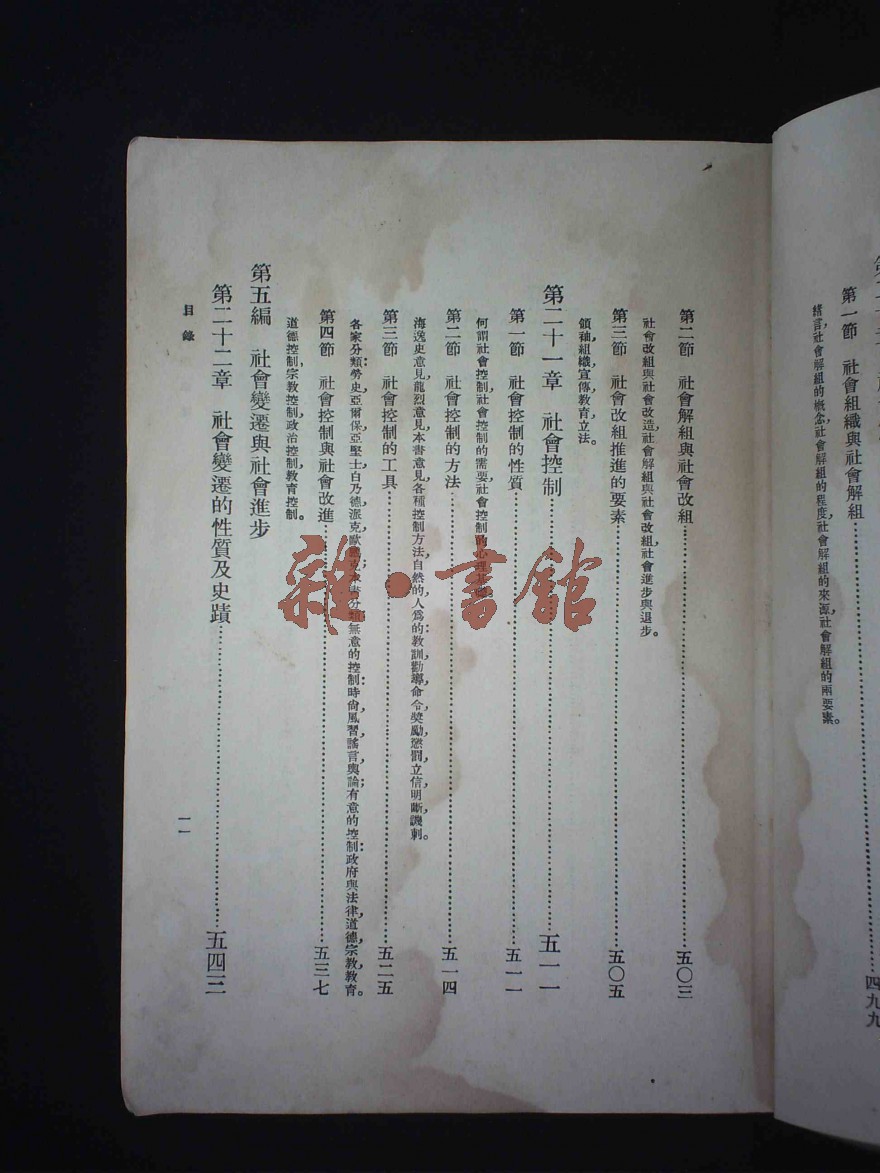 第一節　社會組織與社會解組……四九九
緒言，社會解組的概念，社會解組的程度，社會解組的來源，社會解組的兩要素。
第二節　社會解組與社會改組……五〇三
社會改組與社會改造，社會解組與社會改組，社會進步與退步。
第三節　社會改組推進的要素……五〇五
領袖，組織，宣傳，教育，立法。
第二十一章　社會控制……五一一
第一節　社會控制的性質……五一一
何謂社會控制，社會控制的需要，社會控制的心理基礎。
第二節　社會控制的方法……五一四
海逸史意見，龍烈意見，本書意見，各種控制方法：自然的，人爲的，教訓，勸導，命令，獎勵，懲罰，立信，明晰，譏刺。
第三節　社會控制的工具……五二五
各家分類：勞史，亞爾保，亞堅士，白乃德，派克，本書分類：無意的控制：時尚，風習，謠言，輿論；有意的控制：政府與法律，道德，宗教，教育。
第四節　社會控制與社會改進……五三七
道德控制，宗教控制，政治控制，教育控制。
第五編　社會變遷與社會進步
第二十二章　社會變遷的性質及史蹟……五四二
目錄
一一
雜·書館